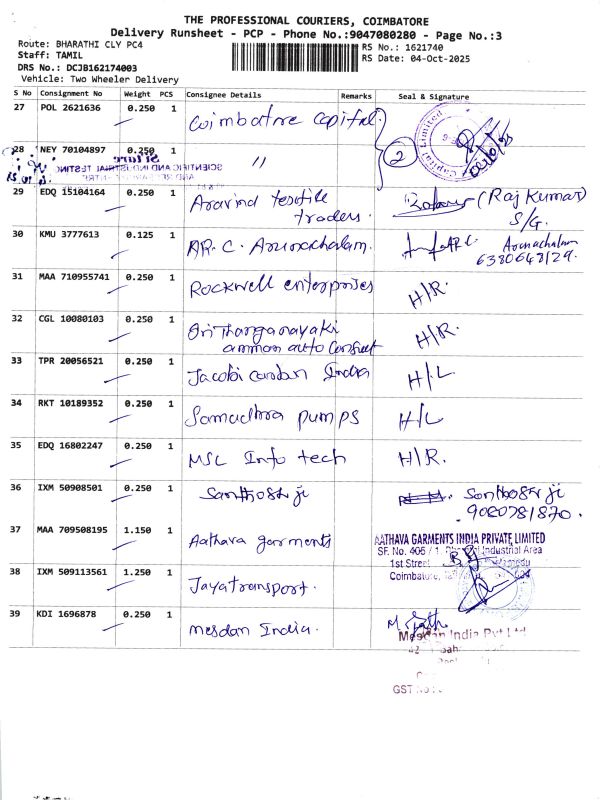 THE PROFESSIONAL COURIERS, COIMBATORE
Delivery Runsheet - PCP - Phone No.:9047080280 - Page No.:3
Route: BHARATHI CLY PC4
Staff: TAMIL
DRS No.: DCJB162174003
Vehicle: Two Wheeler Delivery
RS No.: 1621740
RS Date: 04-Oct-2025
S No Consignment No Weight PCS Consignee Details Remarks Seal & Signature
27 POL 2621636 0.250 1 Coimbatore capital
Capital Limited
28 NEY 70104897 0.250 1 〃 2
SCIENTIFIC AND INDUSTRIAL TESTING
29 EDQ 15104164 0.250 1 Aravind textile (Raj Kumar)
traders. S/G.
30 KMU 3777613 0.125 1 AR. C. Arunachalam. Arunachalam
6380648129.
31 MAA 710955741 0.250 1 Rockwell enterprises H/R.
32 CGL 10080103 0.250 1 H/R.
amman auto
33 TPR 20056521 0.250 1 Jacobi carbon India H/L.
34 RKT 10189352 0.250 1 Samudhra pumps H/L
35 EDQ 16802247 0.250 1 MSL Info tech H/R.
36 IXM 50908501 0.250 1 Santhosh ji Santhosh ji
9080781870.
37 MAA 709508195 1.150 1 Aathava garments
AATHAVA GARMENTS INDIA PRIVATE LIMITED
SF. No. 405 / 1, Industrial Area
1st Street
Coimbatore,
38 IXM 509113561 1.250 1 Jaya transport.
39 KDI 1696878 0.250 1 mesdan India.
Mesdan India Pvt Ltd
GST No.: